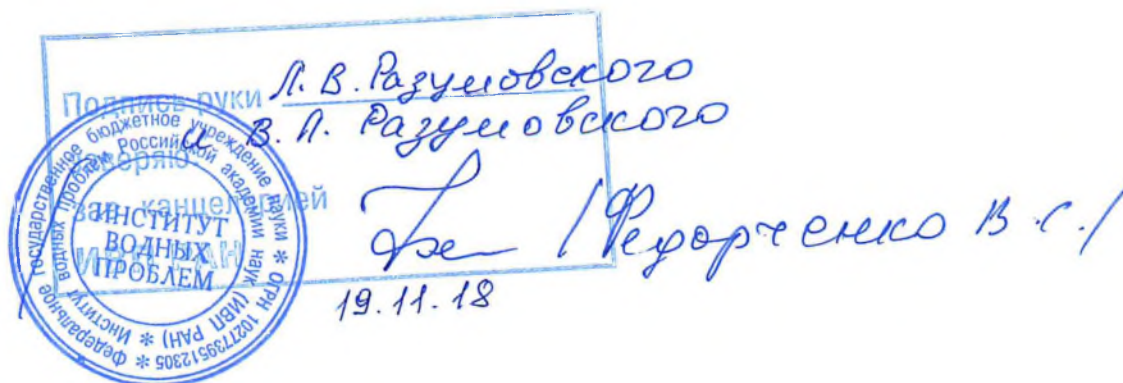 Подпись руки Л. В. Разумовского
и В. Л. Разумовского
заверяю
зав. канцелярией
ИВП РАН
/Федорченко В.С./
19.11.18
Федеральное государственное бюджетное учреждение науки * ОГРН 1027739512305 *
Институт водных проблем Российской академии наук (ИВП РАН) *
ИНСТИТУТ
ВОДНЫХ
ПРОБЛЕМ